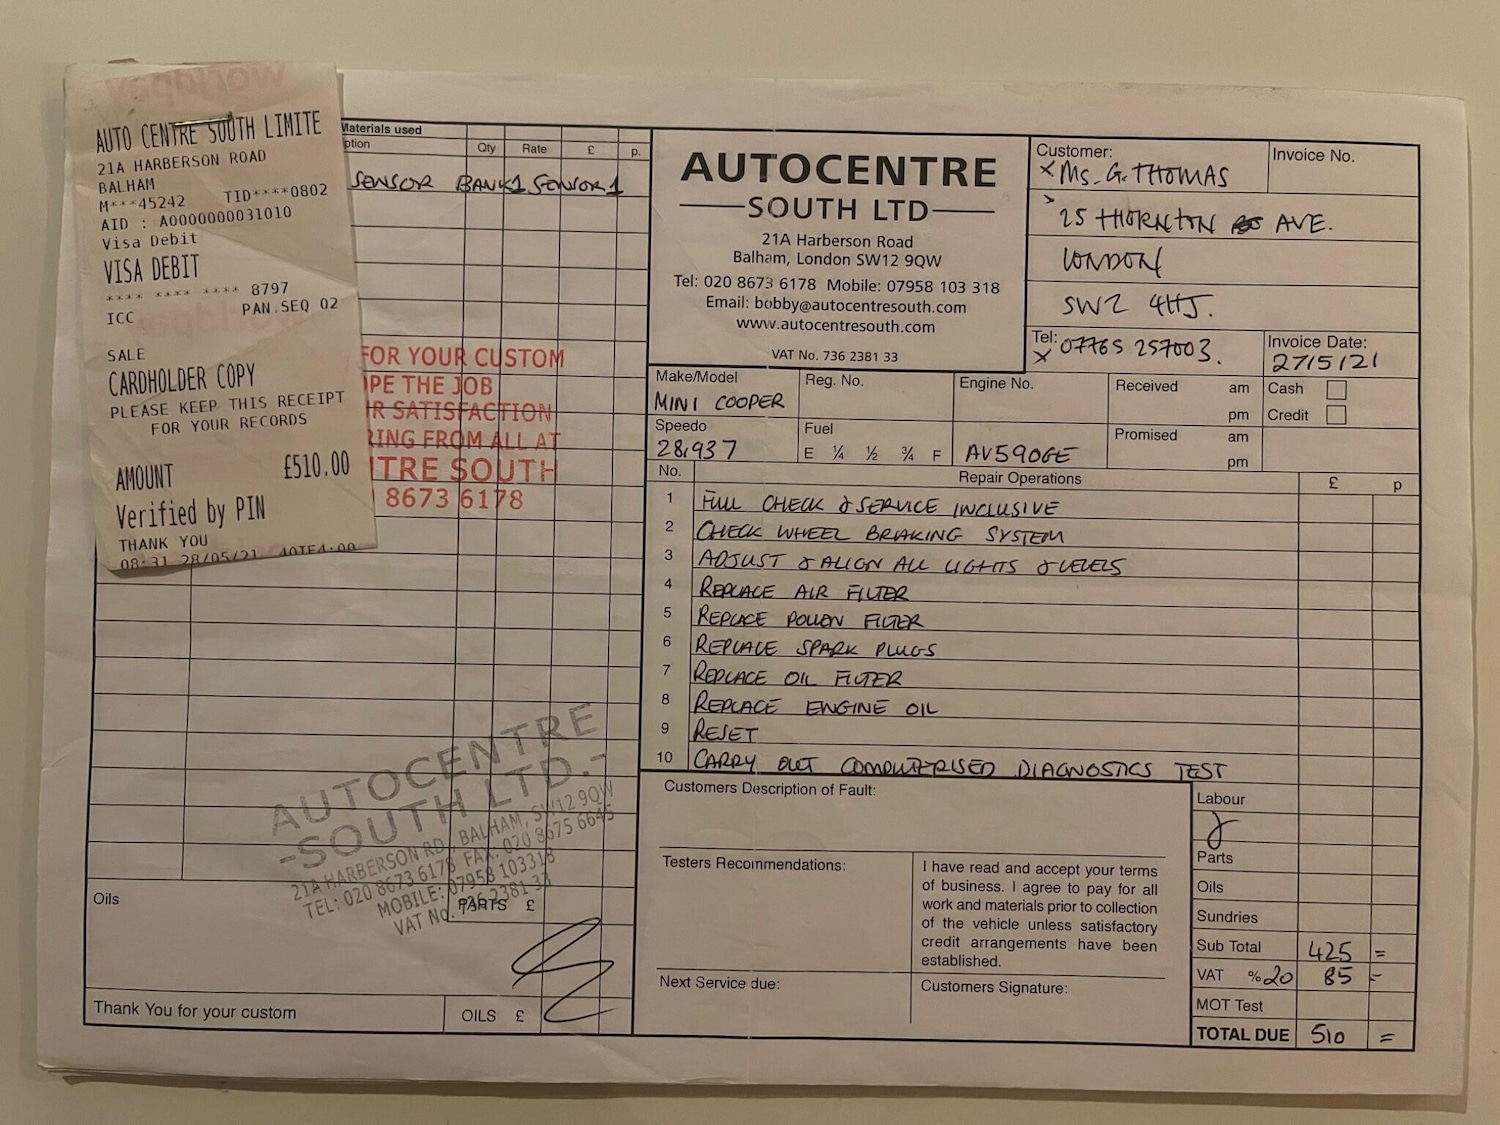 worldpay
AUTO CENTRE SOUTH LIMITE
21A HARBERSON ROAD
BALHAM
M***45242 TID****0802
AID : A0000000031010
Visa Debit
VISA DEBIT
**** **** **** 8797
ICC PAN.SEQ 02
SALE
CARDHOLDER COPY
PLEASE KEEP THIS RECEIPT
FOR YOUR RECORDS
AMOUNT £510.00
Verified by PIN
THANK YOU
08:31 28/05/21
Materials used
ption Qty Rate £ p.
SENSOR BANK1 SENSOR1
FOR YOUR CUSTOM
PE THE JOB
R SATISFACTION
RING FROM ALL AT
TRE SOUTH
8673 6178
AUTOCENTRE
-SOUTH LTD.-
21A HARBERSON RD., BALHAM, SW12 9QW
TEL: 020 8673 6178 FAX: 020 8675 6645
MOBILE: 07958 103318
VAT No. 736 2381 33
Oils
PARTS £
Thank You for your custom
OILS £
AUTOCENTRE
SOUTH LTD
21A Harberson Road
Balham, London SW12 9QW
Tel: 020 8673 6178 Mobile: 07958 103 318
Email: bobby@autocentresouth.com
www.autocentresouth.com
VAT No. 736 2381 33
Customer: Invoice No.
x Ms. G. THOMAS
25 THORNTON AVE.
LONDON
SW2 4HJ.
Tel: x 07765 257003.
Invoice Date: 27/5/21
Make/Model Reg. No. Engine No. Received am Cash
MINI COOPER pm Credit
Speedo Fuel Promised am
28,937 E ¼ ½ ¾ F AV59OGE pm
No. Repair Operations £ p
1 FULL CHECK & SERVICE INCLUSIVE
2 CHECK WHEEL BRAKING SYSTEM
3 ADJUST & ALIGN ALL LIGHTS & LEVELS
4 REPLACE AIR FILTER
5 REPLACE POLLEN FILTER
6 REPLACE SPARK PLUGS
7 REPLACE OIL FILTER
8 REPLACE ENGINE OIL
9 RESET
10 CARRY OUT COMPUTERISED DIAGNOSTICS TEST
Customers Description of Fault:
Testers Recommendations:
I have read and accept your terms
of business. I agree to pay for all
work and materials prior to collection
of the vehicle unless satisfactory
credit arrangements have been
established.
Next Service due:
Customers Signature:
Labour
&
Parts
Oils
Sundries
Sub Total 425 =
VAT % 20 85 =
MOT Test
TOTAL DUE 510 =